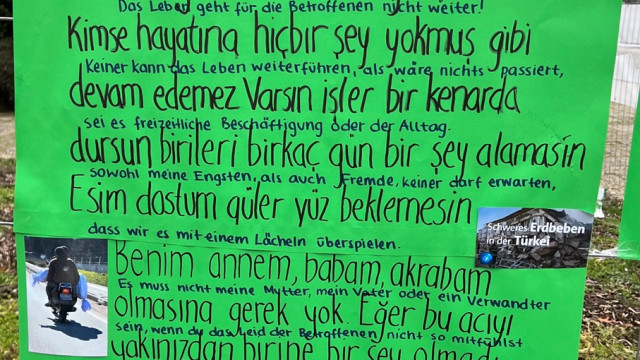 Das Leben geht für die Betroffenen nicht weiter!
Kimse hayatına hiçbir şey yokmuş gibi
Keiner kann das Leben weiterführen, als wäre nichts passiert,
devam edemez Varsın işler bir kenarda
sei es freizeitliche Beschäftigung oder der Alltag.
dursun birileri birkaç gün bir şey alamasın
sowohl meine Engsten, als auch Fremde, keiner darf erwarten,
Esim dostum güler yüz beklemesin
dass wir es mit einem Lächeln überspielen.
Schweres Erdbeben
in der Türkei
Benim annem, babam, akrabam
Es muss nicht meine Mutter, mein Vater oder ein Verwandter
olmasına gerek yok. Eğer bu acıyı
sein, wenn du das Leid der Betroffenen nicht so mitfühlst
yakınızdan birine bir şey olmadı